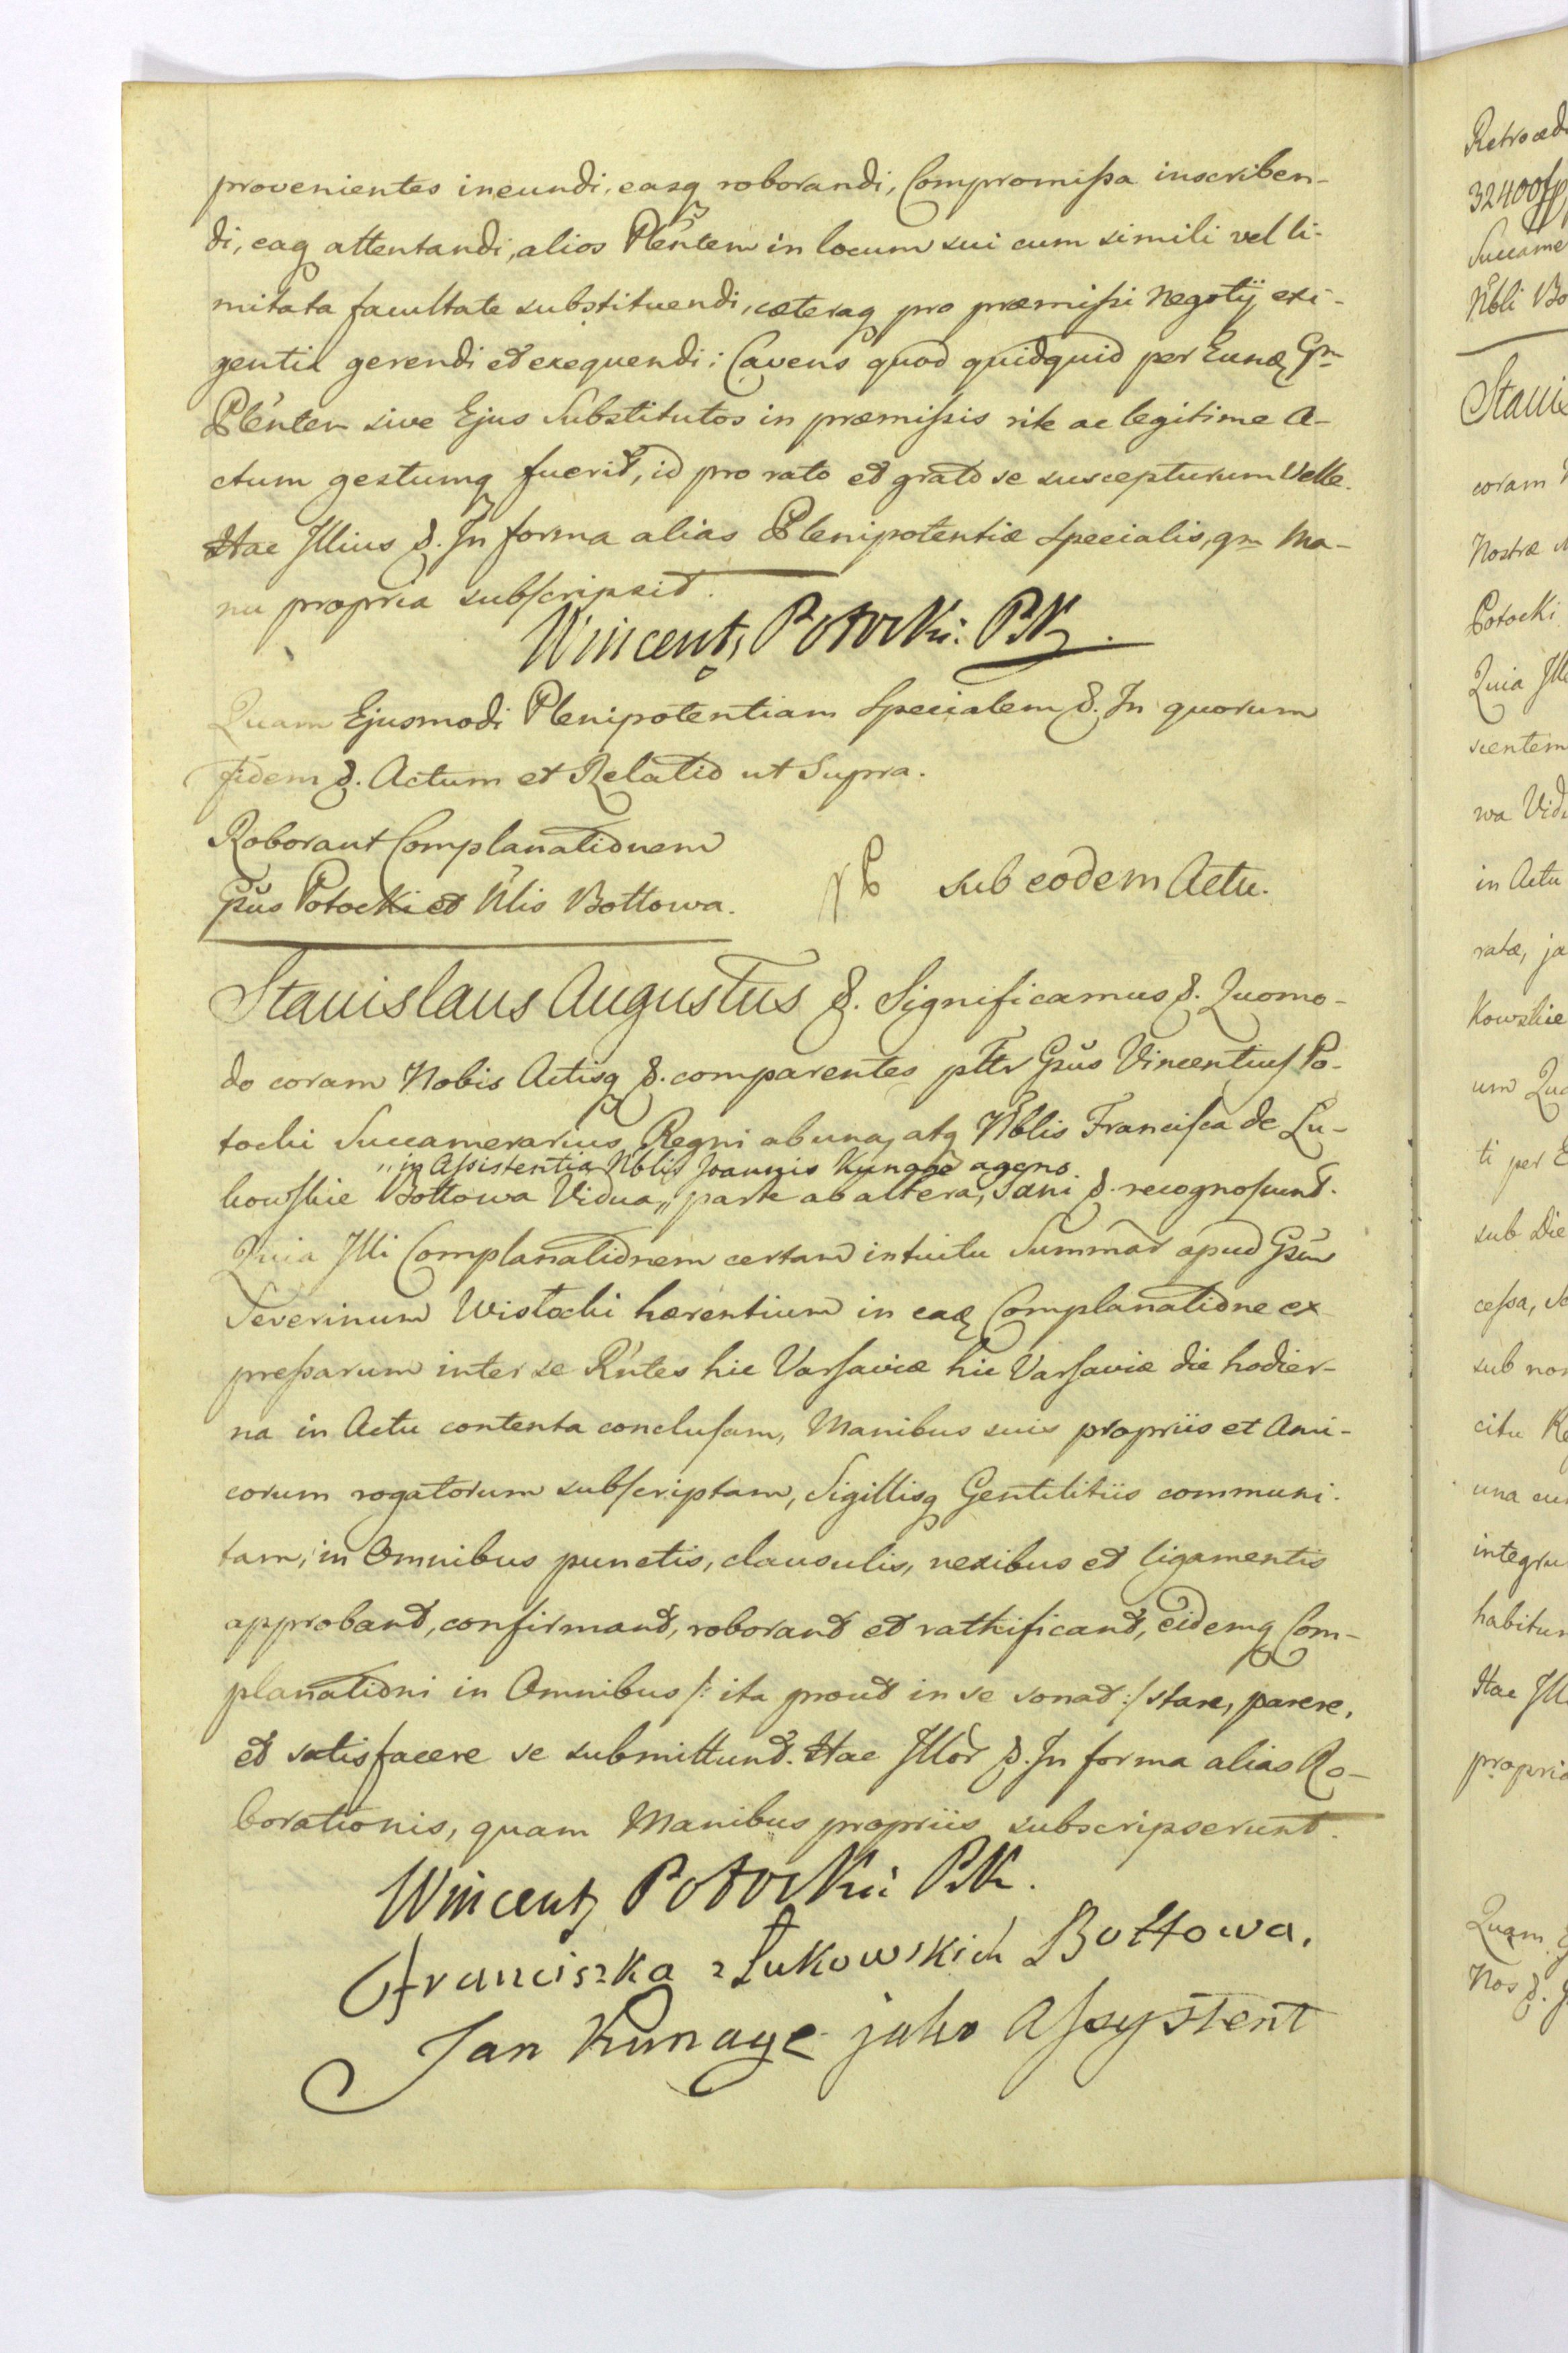 provenientes ineundi, easq roborandi, Compromissa inscriben-
di, eaq attentandi, alios Plentem in locum sui cum simili vel li-
mitata facultate substituendi, cæteraq pro præmissi Negotij exi-
gentia gerendi et exequendi: Cavens quod quidquid per Eunq Gm
Plenten sive Ejus Substitutos in præmissis rite ac legitime a-
ctum gestumq fuerit, id pro rato et grato se suscepturum Velle.
Hac Illius &. In forma alias Plenipotentiæ Specialis, qm Ma-
nu propria subscripsit.
Wincenty Potocki: PK.
Quam Ejusmodi Plenipotentiam Specialem &. In quorum
fidem &. Actum et Relatio ut Supra.
Roborant Complanationem
Gsus Potocki et Nlis Bottowa.
sub eodem Actu.
Stanislaus Augustus &. Significamus &. Quomo-
do coram Nobis Actisq &. comparentes pttr Gsus Vincentius Po-
tocki Succamerarius Regni ab una, atq Nblis Francisca de Lu-
„in Assistentia Nblis Joannis Kunage agens
kowskie Bottowa Vidua„ parte ab altera, Sani &. recognoscunt.
Quia Illi Complanationem certam intuitu Summar apud Gsum
Severinum Wistocki hærentium in eaq Complanatione ex
pressarum inter se Rntes hic Varsaviæ hic Varsaviæ die hodier-
na in Actu contenta conclusam, Manibus suis propriis et Ami-
corum rogatorum subscriptam, Sigillisq Gentilitiis communi-
tam, in Omnibus punctis, clausulis, nexibus et ligamentis
approbant, confirmant, roborant et rathificant, eidemq Com-
planationi in Omnibus /: ita prout in se sonat :/ stare, parere,
et satisfacere se submittunt. Hac Illor &. In forma alias Ro-
borationis, quam Manibus propriis subscripserunt.
Wincenty Potocki PK.
Franciszka z Łukowskich Bottowa.
Jan Kunage jako Assystent
Retroced
32400 fp
Succame
Nbli Bo
Stanis
coram
Nostræ
Potocki
Quia Ill
scentem
wa Vidu
in Actu
ratæ, ja
kowskie
um Qu
ti per E
sub Die
cessa,
sub no
citu Re
una cu
integru
habitu
Hac Ill
propria
Quam
Nos &.